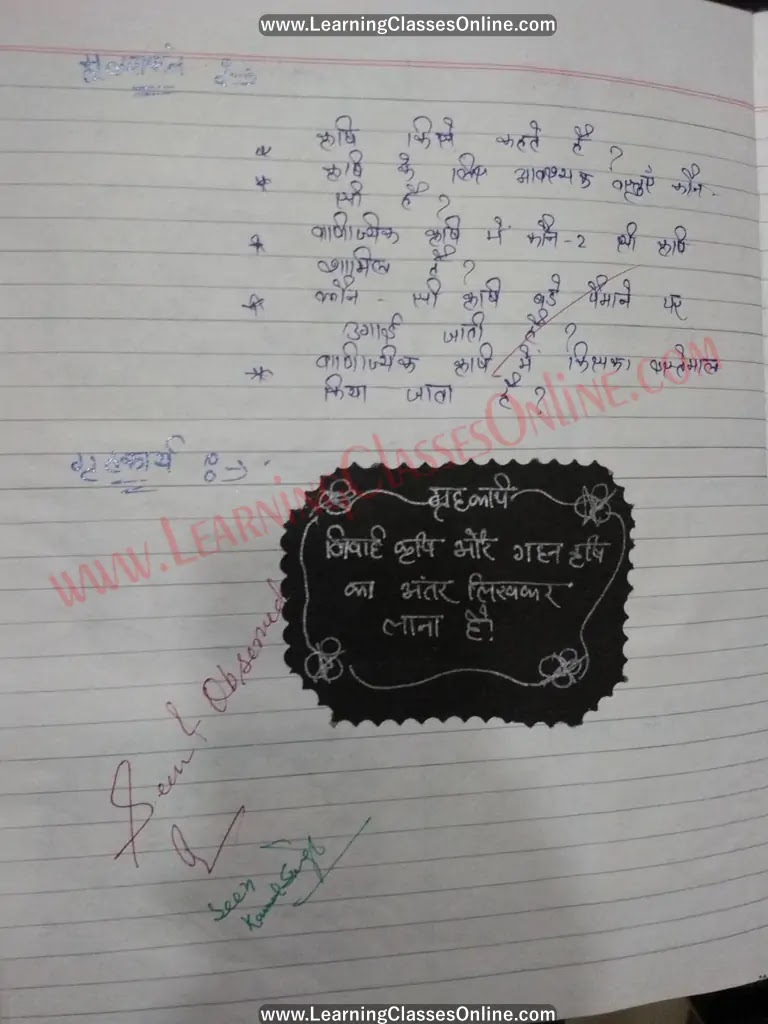 www.LearningClassesOnline.com
मूल्यांकन :-
* कृषि किसे कहते हैं ?
* कृषि के लिए आवश्यक वस्तुएँ कौन-
सी हैं ?
* वाणिज्यिक कृषि में कौन-2 सी कृषि
शामिल हैं ?
* कौन-सी कृषि बड़े पैमाने पर
उगाई जाती है ?
* वाणिज्यिक कृषि में किसका इस्तेमाल
किया जाता है ?
www.LearningClassesOnline.com
गृहकार्य :-
गृहकार्य
निर्वाह कृषि और गहन कृषि
का अंतर लिखकर
लाना है।
Seen & Observed
Seen
www.LearningClassesOnline.com